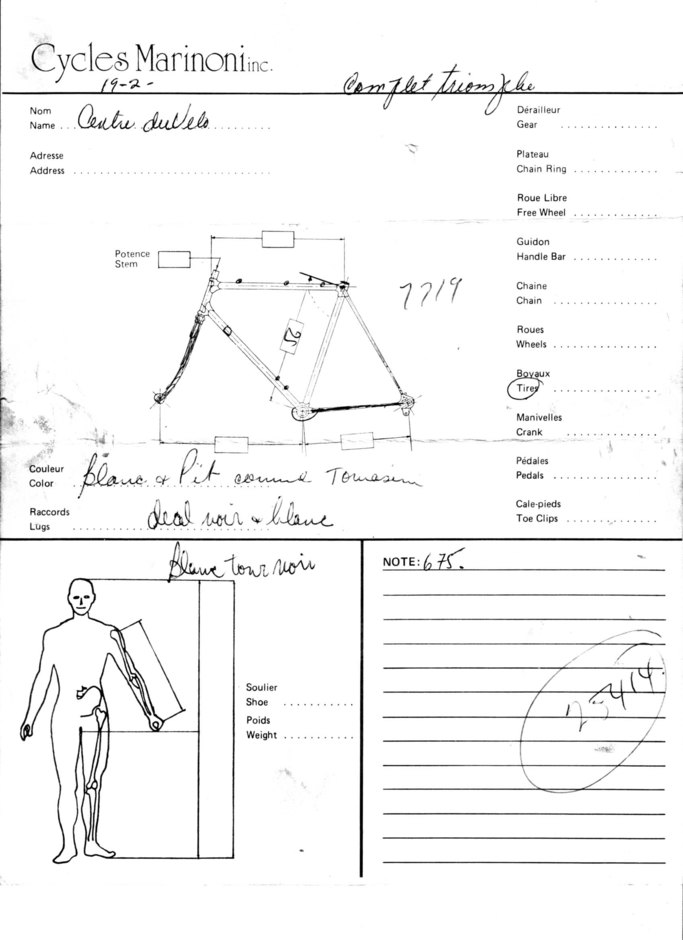 Cycles Marinoni inc.
19-2-
Complet triomphe
Nom
Name
Centre du Vélo
Adresse
Address
Dérailleur
Gear
Plateau
Chain Ring
Roue Libre
Free Wheel
Guidon
Handle Bar
Chaine
Chain
Roues
Wheels
Boyaux
Tires
Manivelles
Crank
Pédales
Pedals
Cale-pieds
Toe Clips
Potence
Stem
25
7719
Couleur
Color
Blanc & Pèt comme Tomasini
Raccords
Lugs
decal noir & blanc
Blanc tour noir
Soulier
Shoe
Poids
Weight
NOTE: 675.